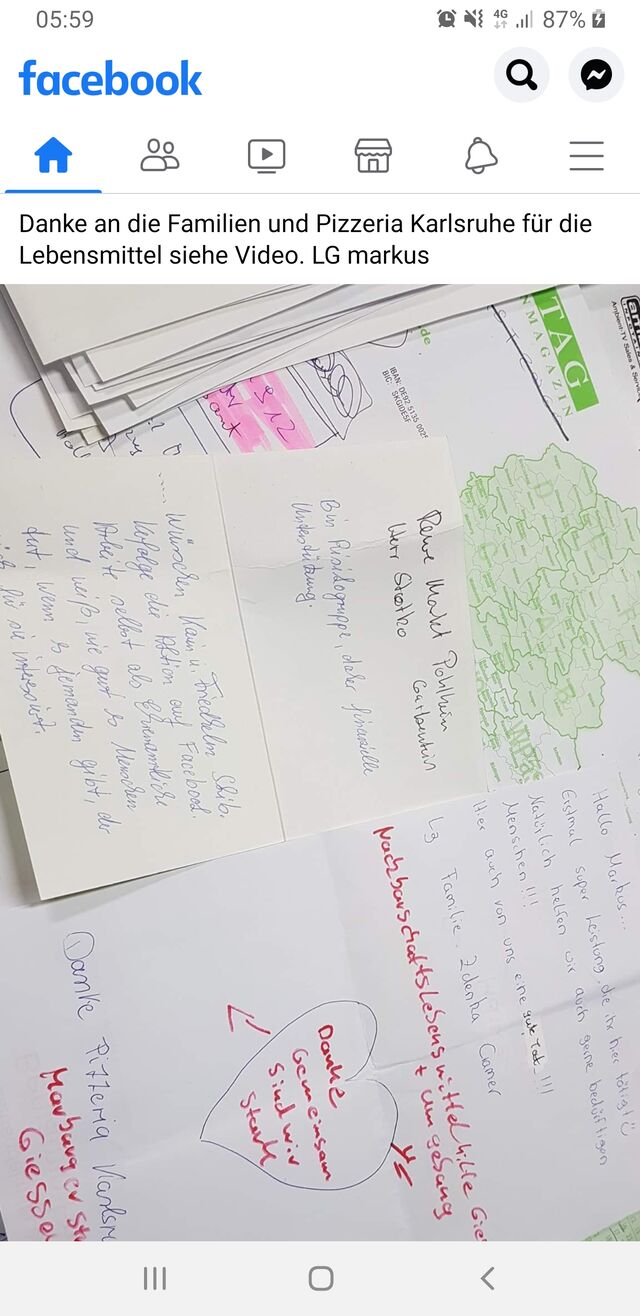 05:59
4G
87%
facebook
Danke an die Familien und Pizzeria Karlsruhe für die
Lebensmittel siehe Video. LG markus
TAG
NMAGAZIN
Ambient-TV Sales & Servic
de
IBAN: DE92 5135 0025
BIC: SKGIDE5F
Rewe Markt Pohlheim
Garbenteich
Herr
Bin Risikogruppe, daher finanzielle
Unterstützung.
Wünschen Karin u. Friedhelm
Verfolge die Aktion auf Facebook.
Arbeite selbst als Ehrenamtliche
und weiß, wie gut es Menschen
tut, wenn es jemanden gibt, der
sich für sie interessiert.
Hallo Markus...
Erstmal super Leistung die ihr hier tätigt
Natürlich helfen wir auch gerne bedürftigen
Menschen!!!
Hier auch von uns eine gute Tat !!!
Lg Familie Zdenka Gamer
Nachbarschaftslebensmittelhilfe Gie
+ Umgebung
Danke
Gemeinsam
sind wir
Stark
Danke Pizzeria Karlsr
Marburger St
Giesse